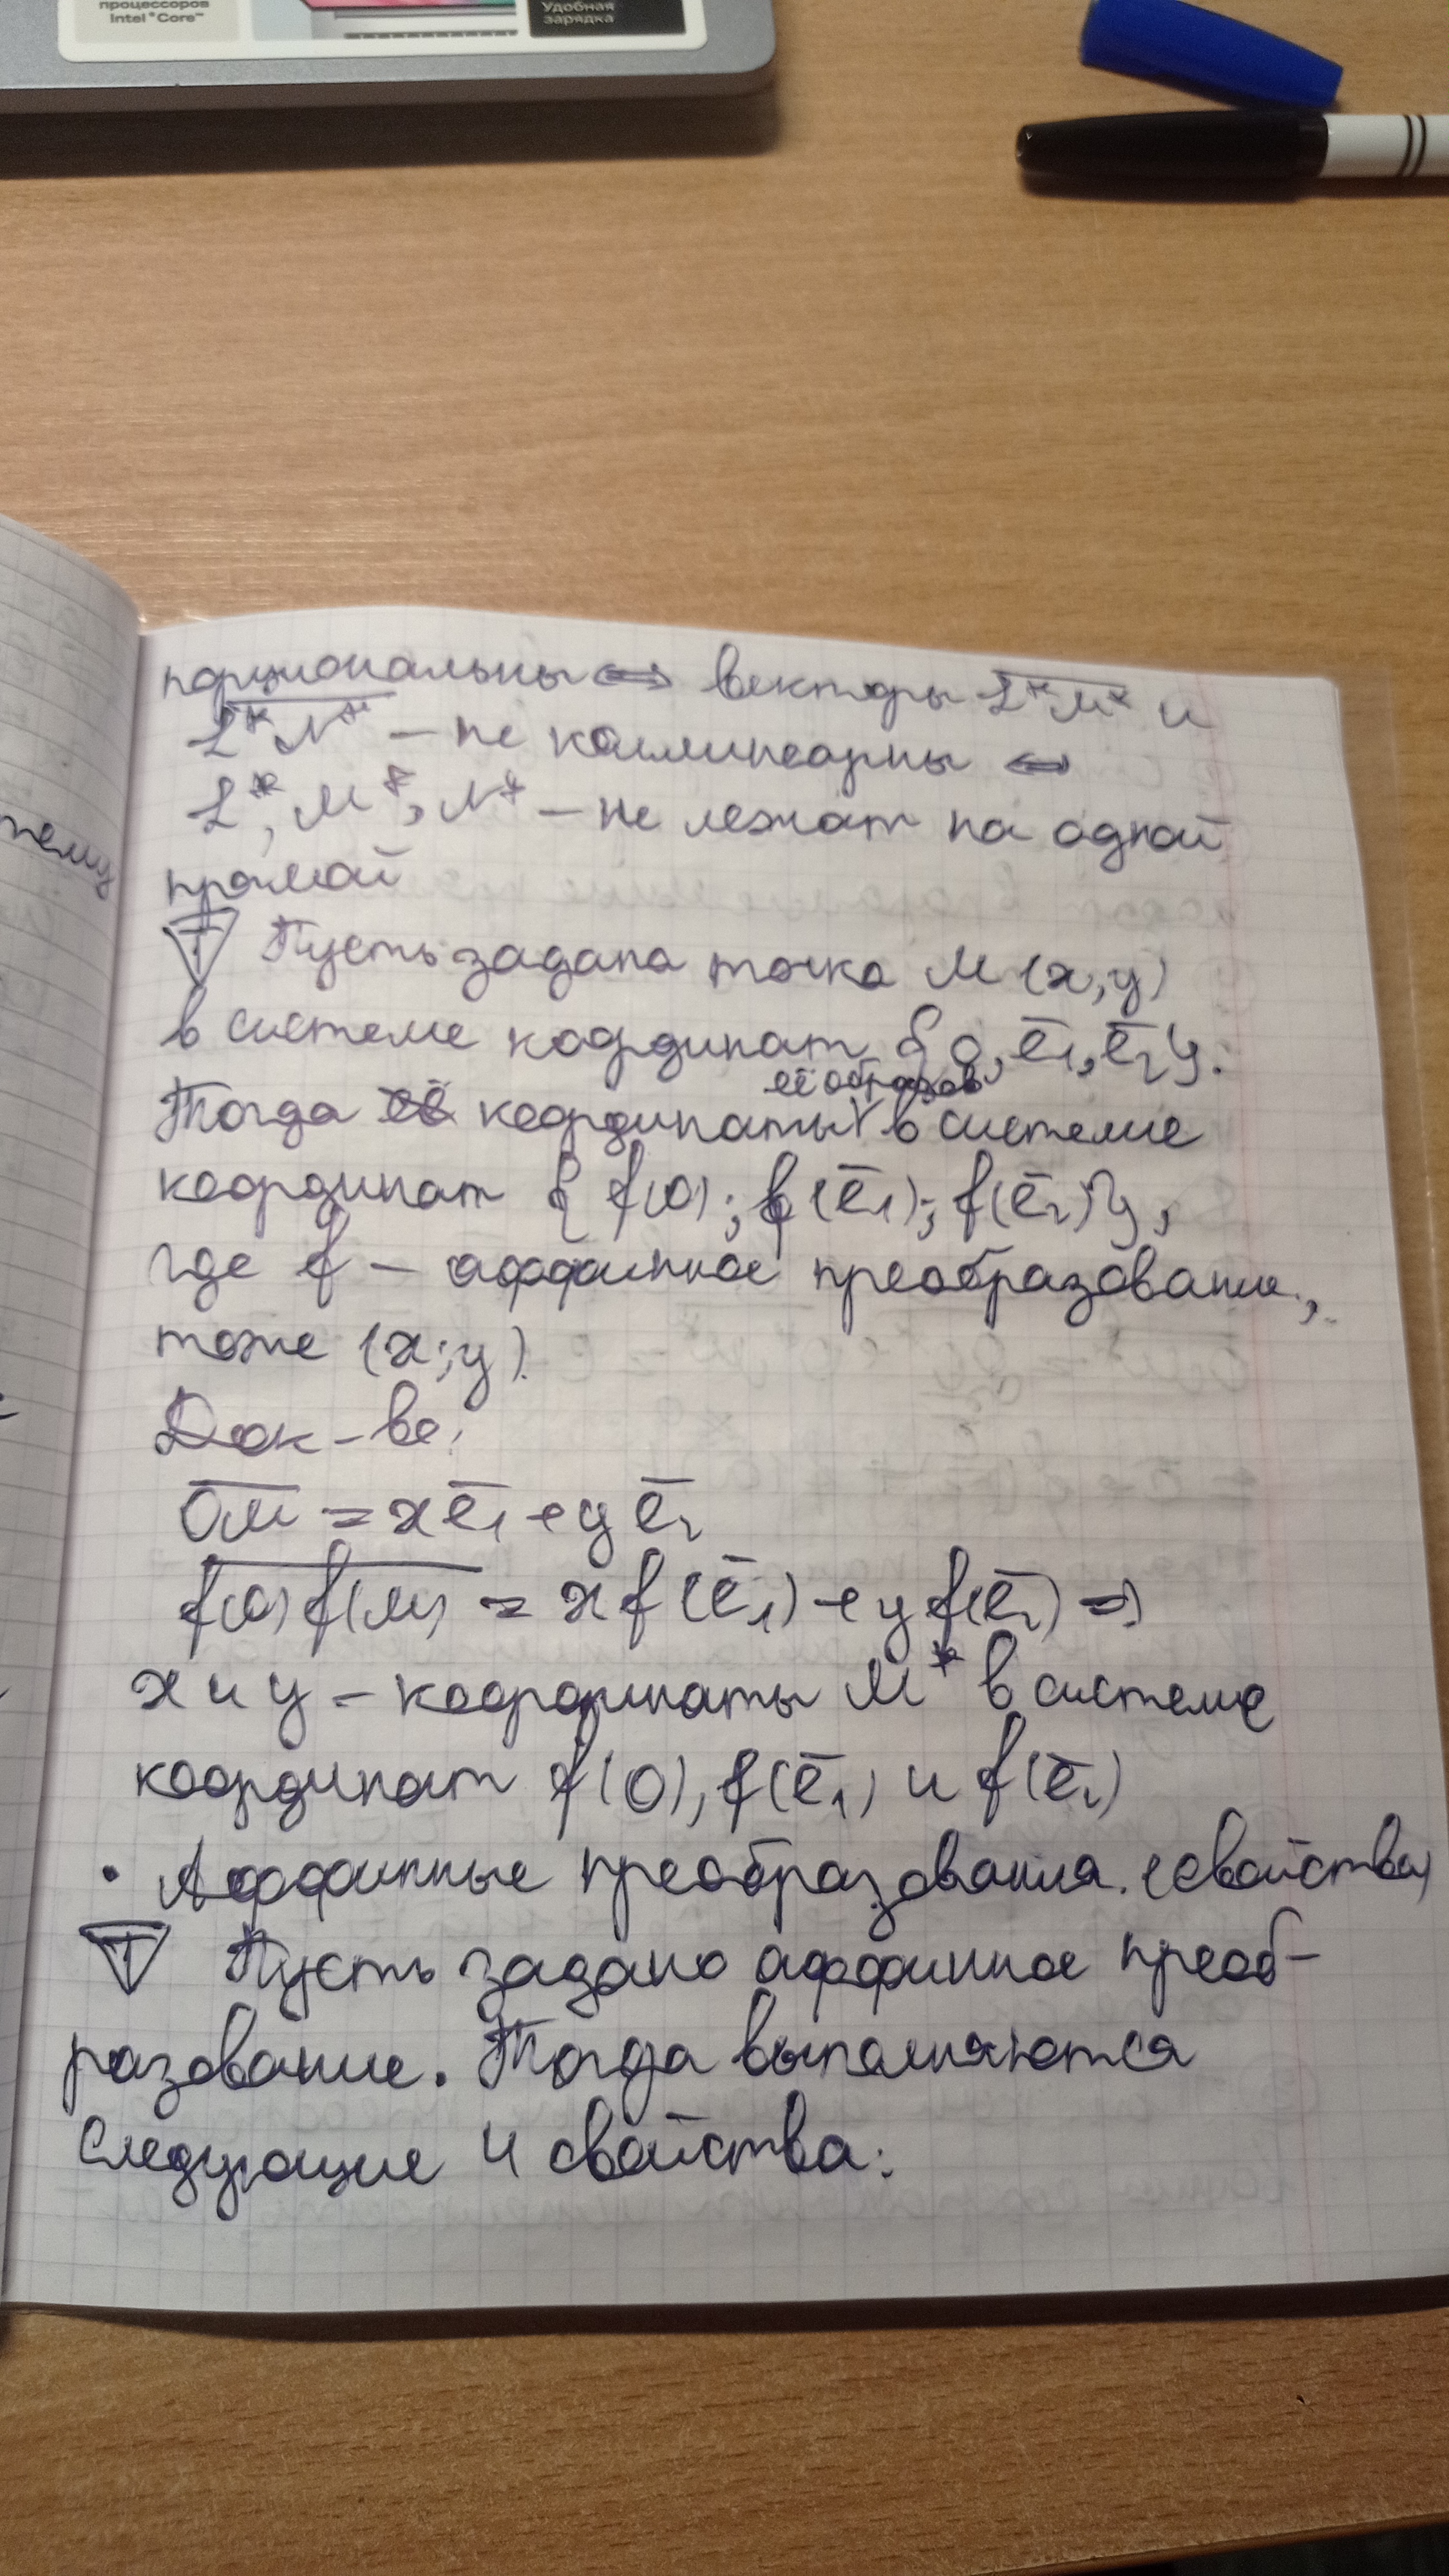 процессоров
Intel® Core™
Удобная
зарядка
тему
порциональны ⟺ векторы L*M* и
L*N* – не коллинеарны ⟺
L*, M*, N* – не лежат на одной
прямой
T Пусть задана точка M (x, y)
в системе координат {O, e̅₁, e̅₂}.
её образов
Тогда её координаты в системе
координат { f(O); f(e̅₁); f(e̅₂)},
где f – аффинное преобразование,
тоже (x; y).
Док-во:
OM = x e̅₁ + y e̅₂
f(O) f(M) = x f(e̅₁) + y f(e̅₂) ⇒
x и y – координаты M* в системе
координат f(O), f(e̅₁) и f(e̅₂)
• Аффинные преобразования. (свойства)
T Пусть задано аффинное преоб-
разование. Тогда выполняются
следующие 4 свойства: